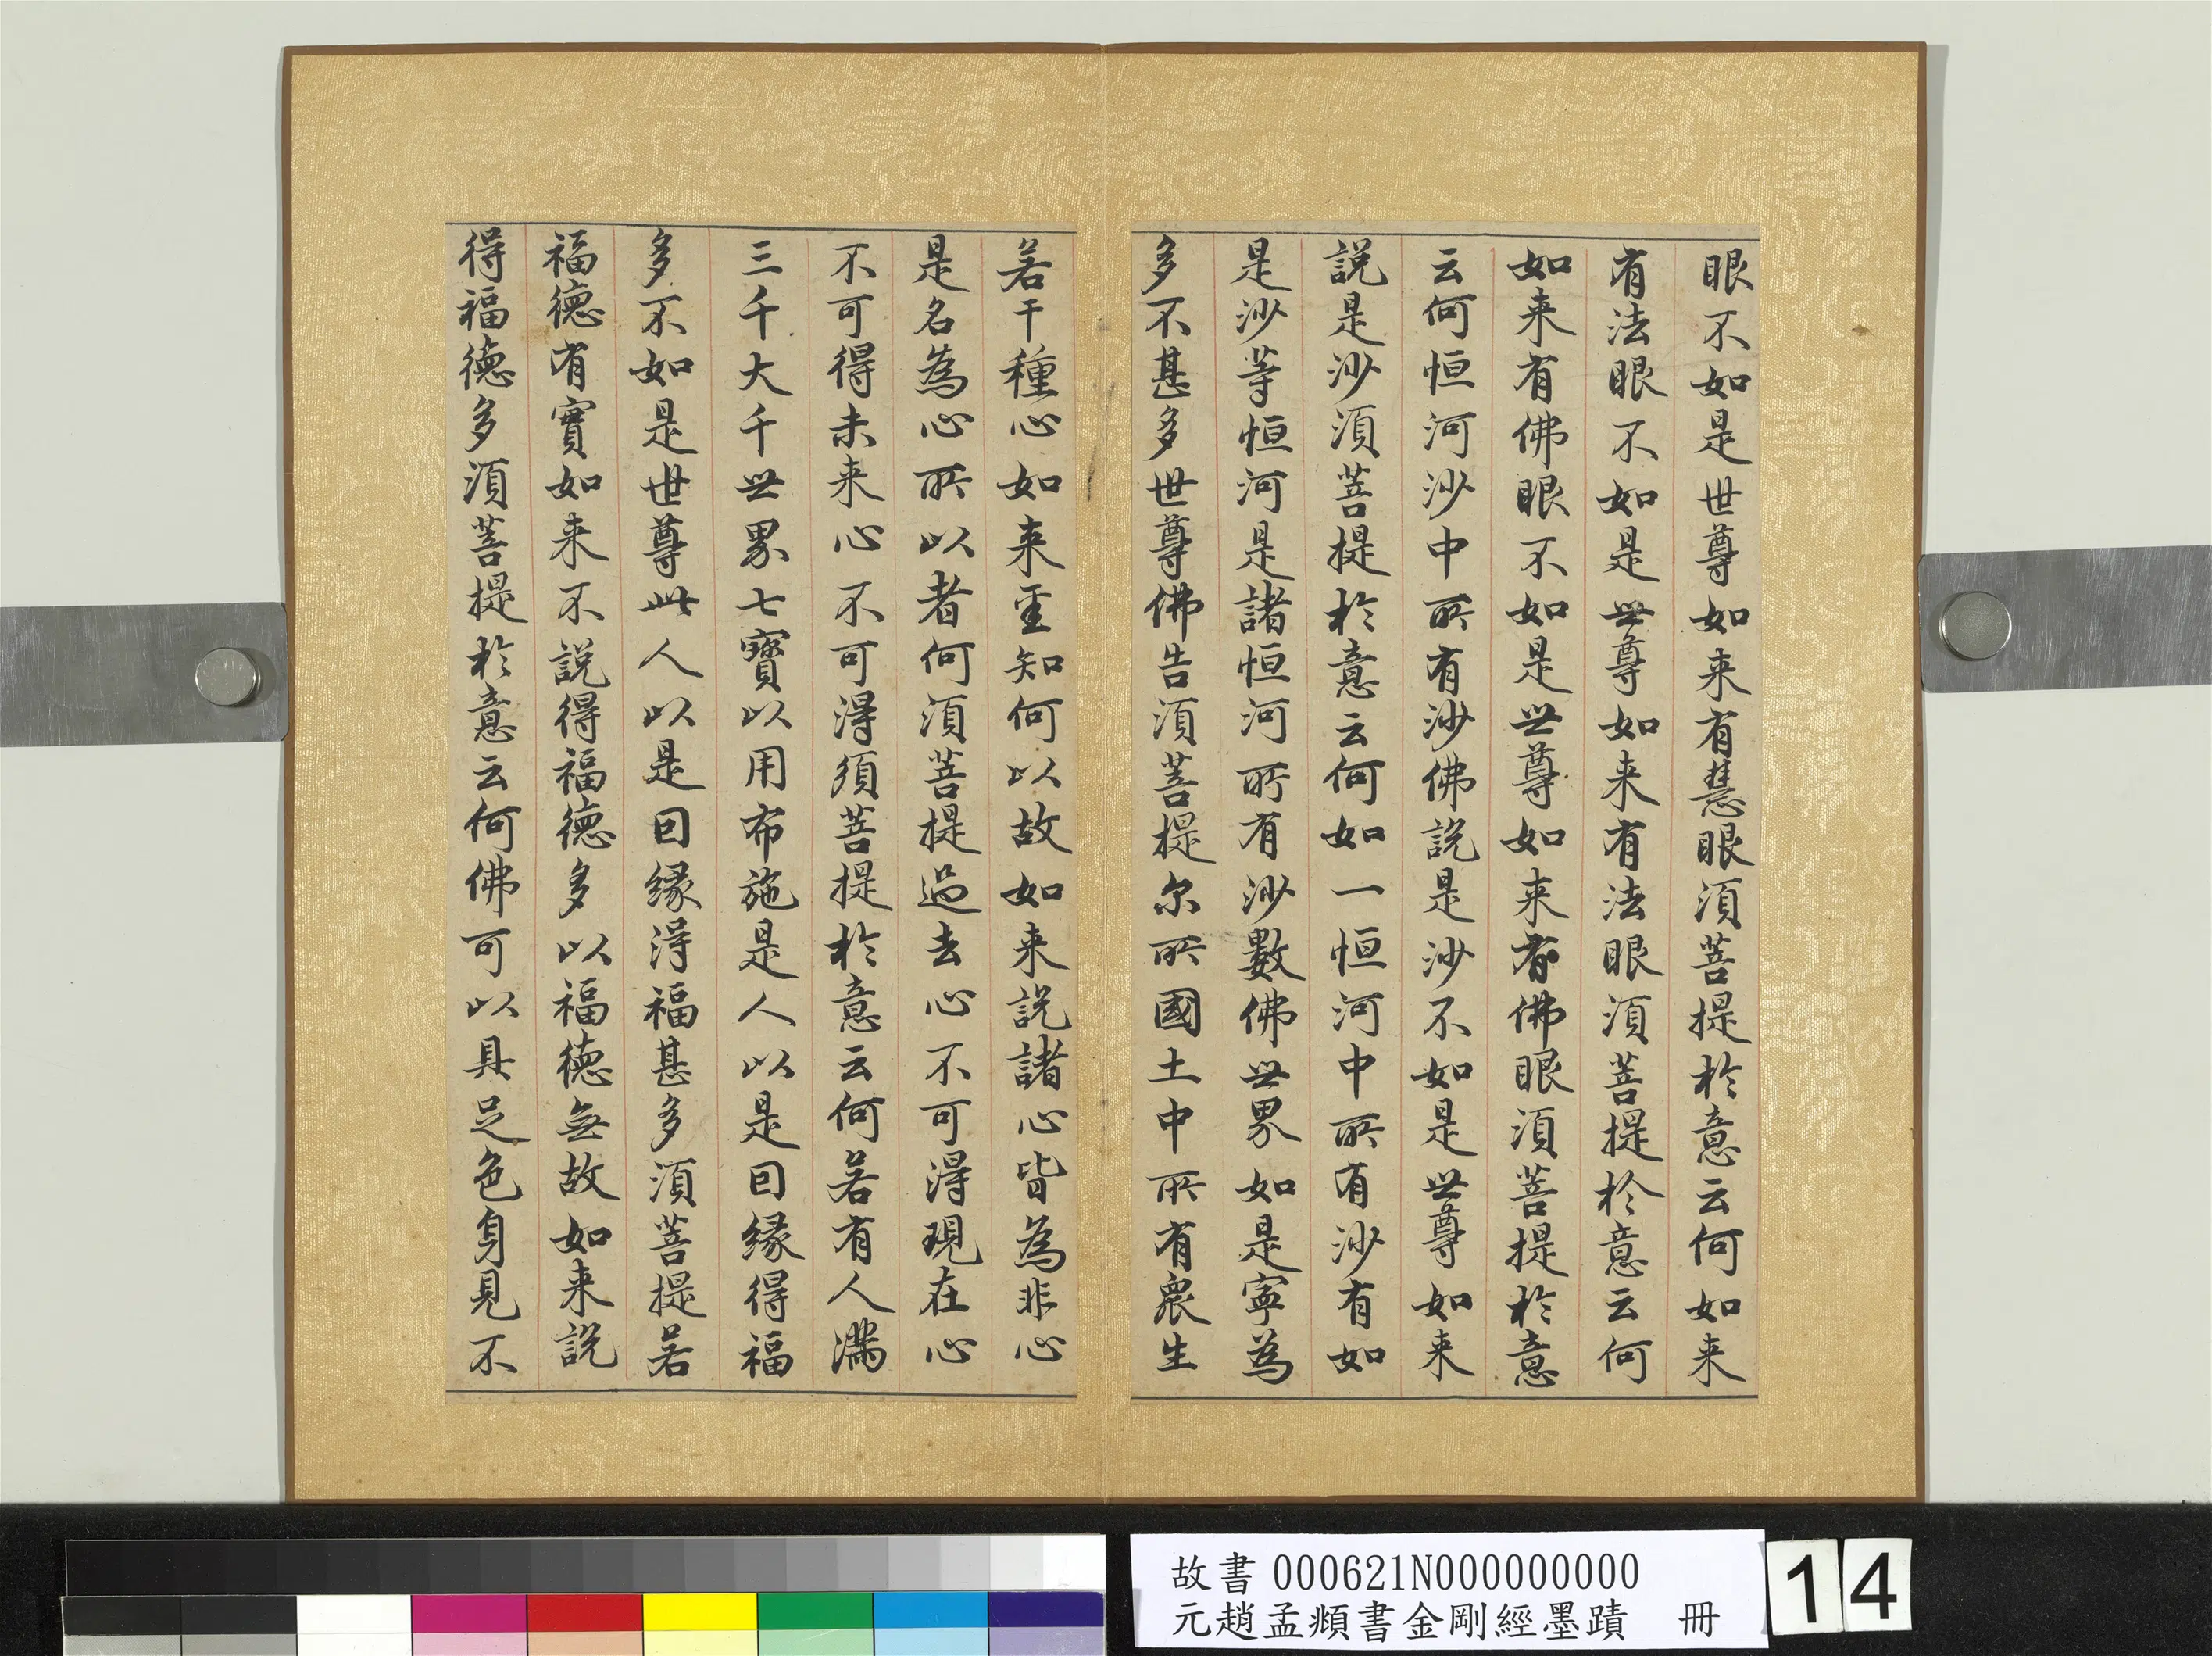 眼不如是世尊如来有慧眼須菩提於意云何如来
有法眼不如是世尊如来有法眼須菩提於意云何
如来有佛眼不如是世尊如来有佛眼須菩提於意
云何恒河沙中所有沙佛說是沙不如是世尊如来
說是沙須菩提於意云何如一恒河中所有沙有如
是沙等恒河是諸恒河所有沙數佛世界如是寧為
多不甚多世尊佛告須菩提尔所國土中所有衆生
若干種心如来悉知何以故如来說諸心皆為非心
是名為心所以者何須菩提過去心不可得現在心
不可得未来心不可得須菩提於意云何若有人滿
三千大千世界七寶以用布施是人以是因緣得福
多不如是世尊此人以是因緣得福甚多須菩提若
福德有實如来不說得福德多以福德無故如来說
得福德多須菩提於意云何佛可以具足色身見不
故書 000621N000000000
元趙孟頫書金剛經墨蹟 冊
14